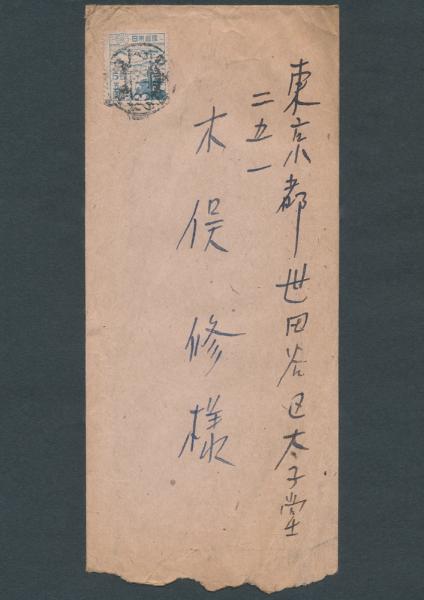 東京都世田谷区太子堂
二五一
木俣修様
日本郵便